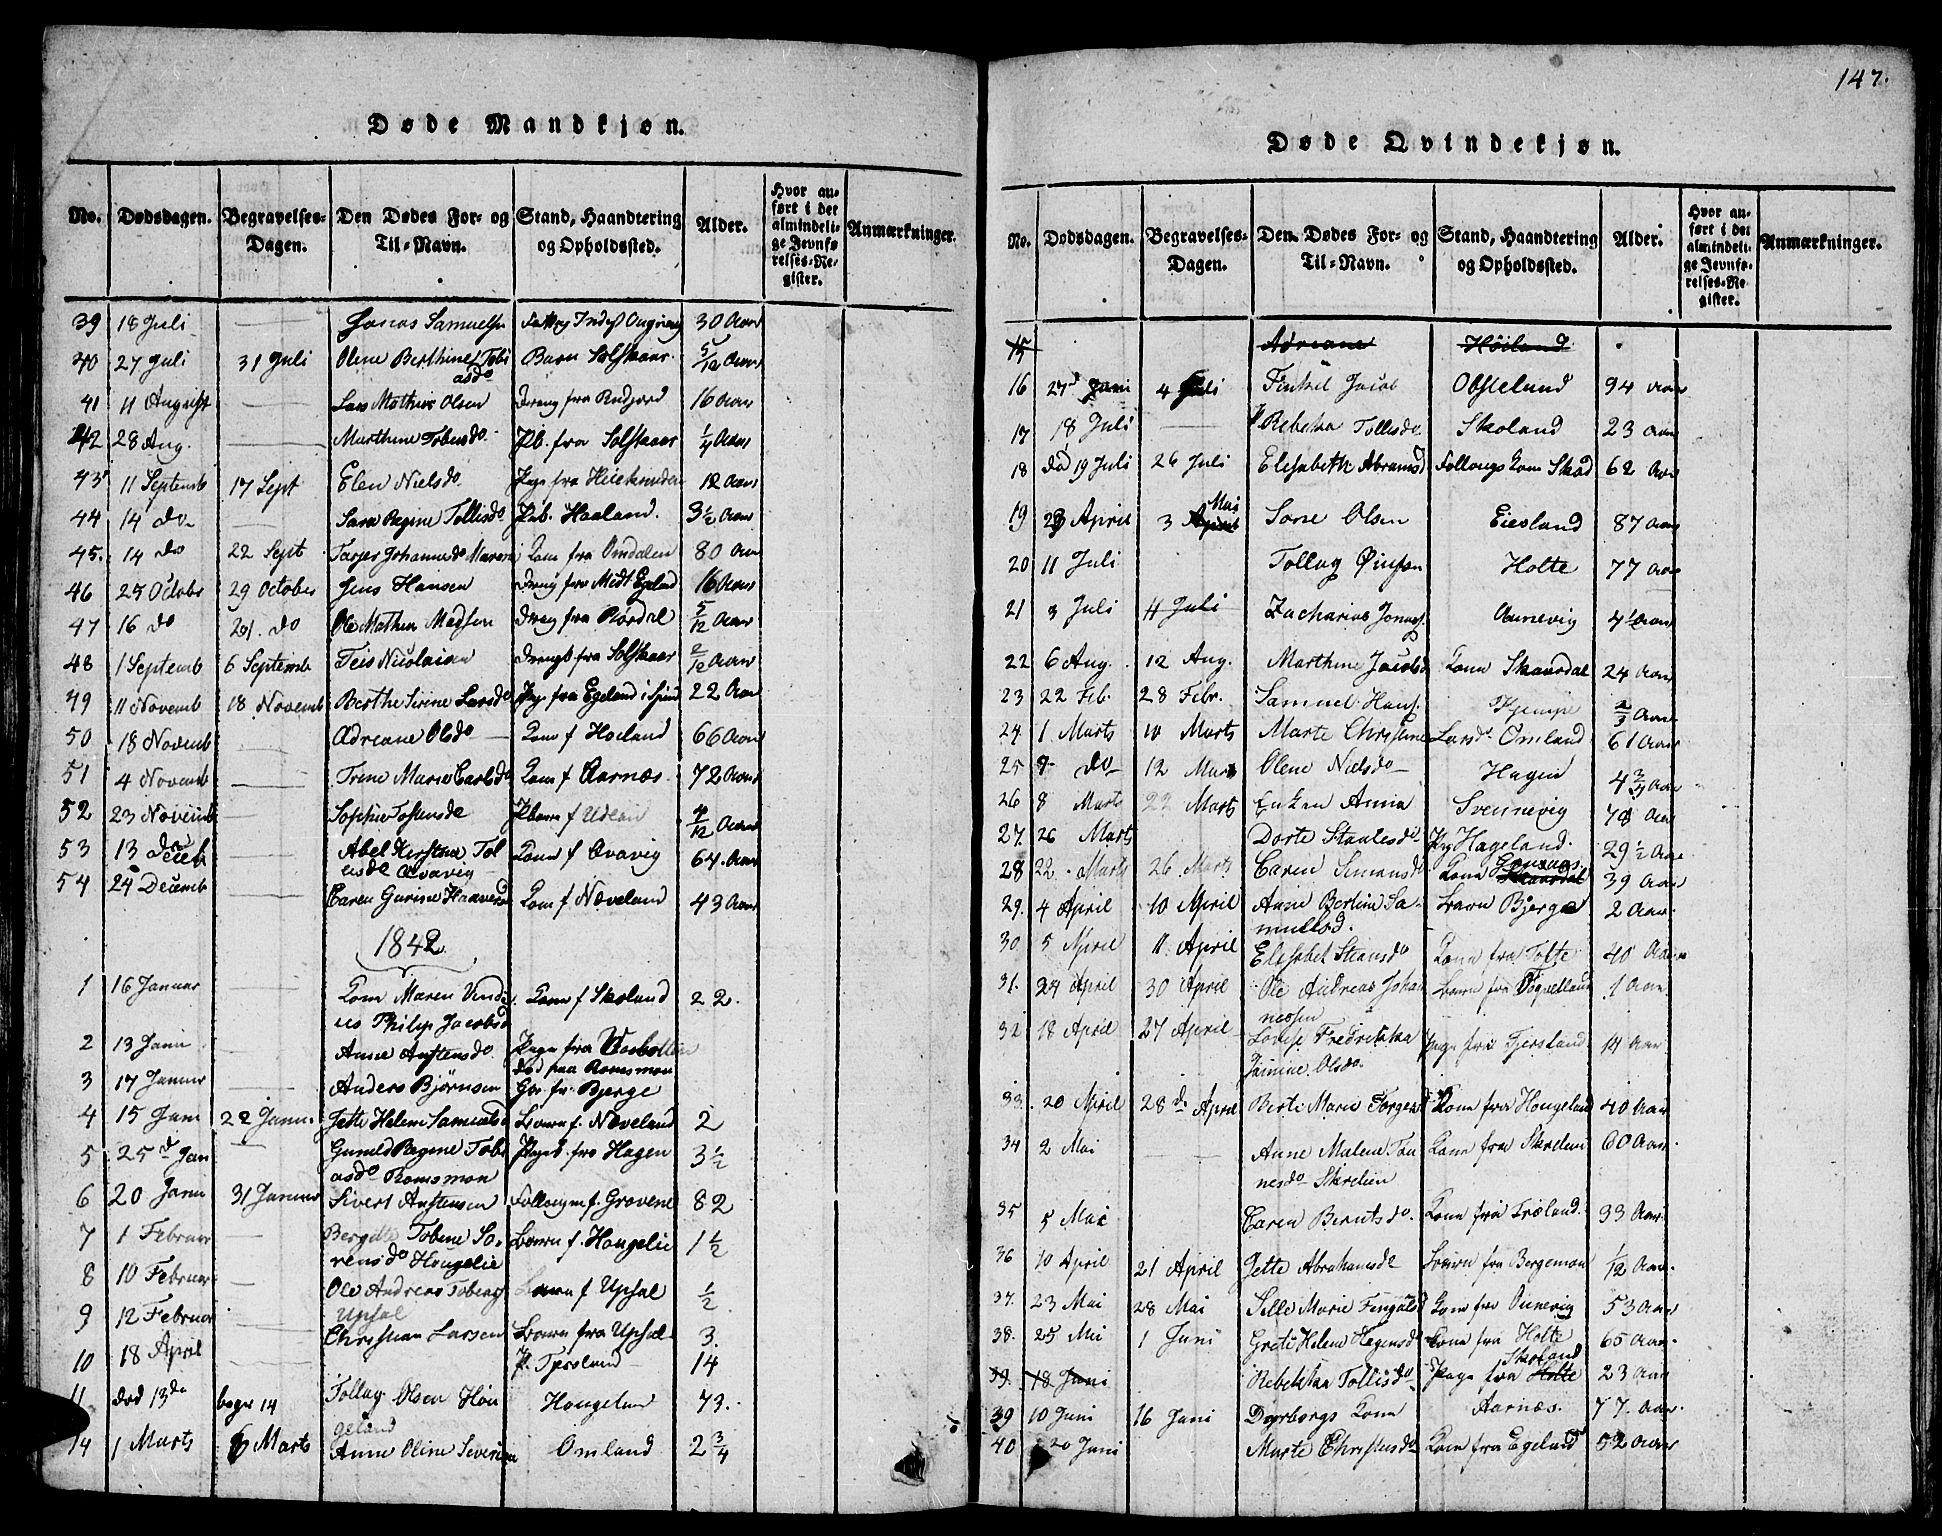 147.
Døde Mandkjøn.
No. Dødsdagen. Begravelses-Dagen. Den Dødes For- og Til-Navn. Stand, Haandtering og Opholdssted. Alder. Hvor anført i det almindelige Jevnførelses-Register. Anmærkninger.
39 18 Juli Jonas Samuels 30 Aar
40 27 Juli 31 Juli Olene Berthine Tobiasdo Barn Solskaar 5/12 Aar
41 11 August Lars Mathias Olsen Dreng fra 16 Aar
42 28 Aug. Marthine Tobiasdo Pb. fra Solskaar 1/4 Aar
43 11 Septemb 17 Sept Elen Nielsdo Pige fra 12 Aar
44 14 do Sara Regine Tollisdo Pb. Haaland. 3 1/2 Aar
45. 14 do 22 Sept Tarjer Johannesdo Kone fra Omdalen 80 Aar
46 25 Octobr 29 October Jens Hansen Dreng fra Midt Egeland 16 Aar
47 16 do 21. do Ole Mathias Madsen Dreng fra Rørdal 5/12 Aar
48 1 Septemb 6 Septemb Teis Nicolaisen Drengb fra Solskaar 2/12 Aar
49 11 Novemb 18 Novemb Berthe Sirine Larsdo Pige fra Egeland i Spind 22 Aar
50 18 Novemb Adriane Olsdo Kone f Høiland 66 Aar
51 4 Novemb Trine Marie Carlsdo Kone f Aarnæs 72 Aar
52 23 Novemb Sophie Tostensdo Pbarn f 4/12 Aar
53 13 Deceb Abel Kirstine Tollisdo Qvavig Kone f Qvavig 64. Aar
54 24 Decemb Caren Gurine Haaversd Kone f Næveland 43 Aar
1842
1 16 Januar Kone Maren Philip Jacobsd Kone f Skoland 22.
2 13 Janu Anne Anstensdo Pige fra
3 17 Januar Anders Bjørnsen Død paa Romsmon Gbr fr. Bjerge
4 15 Janu 22 Janu. Jette Helene Samuelsd Barn f. Nøveland 2
5 25 Jan Gunild Regine Tobiasdo Romsmon Pigeb. fra Hagen 3 1/2
6 20 Janu 31 Januar Sivert Anstensen Follougm f. Grovene 82
7 1 Februar Bergitte Tobine Sørensdo Hougelie Barn f. Hougelie 1 1/2
8 10 Februar Ole Andreas Tobias Upsal Barn f Upsal 1/2
9 12 Februar Christian Larsen Barn fra Upsal 3.
10 18 April P. Tjersland 14
11 død 13do begr 14 Tollag Olsen Hougeland Hougeland 73.
14 1 Marts 6 Marts Anne Oline Omland 2 3/4
Døde Qvindekjøn.
No. Dødsdagen. Begravelses-Dagen. Den Dødes For- og Til-Navn. Stand, Haandtering og Opholdssted. Alder. Hvor anført i det almindelige Jevnførelses-Register. Anmærkninger.
15 Adriane Høiland
16 27d Juni 4 Juli Jacob Obsteland 94 Aar
17 18 Juli P Rebekka Tollisdo Skoland 23 Aar
18 død 19 Juli 26 Juli Elisabeth Abramsd Kone 62 Aar
19 23 April 3 Mai Sone Olsen Eiesland 87 Aar
20 11 Juli Tollag Holte 77 Aar
21 3 Juli 11 Juli Zacharias Jonas Ounevig
22 6 Aug. 12 Aug. Marthine Jacobsd Kone Skaardal 24 Aar
23 22 Feb. 28 Febr. Samuel Hans. 2/3 Aar
24. 1. Marts 10 Marts Marte Christine Larsdo Omland 61 Aar
25 9 do 12 Mar Olene Nielsdo Hagen 4 3/4 Aar
26 8 Marts 22 Marts Enken Anna Svennevig 78 Aar
27. 26 Marts Dorte Staalesdo Pig Hageland. 29 1/2 Aar
28 22. Marts 26 Marts Caren Simonsdo Kone Skaardal 39 Aar
29. 4 April 10 April Anne Bertine Samuelsd. Barn Bjerge 2 Aar
30. 5 April 11. April Elisabet Steansdo Kone fra Tolte 40 Aar
31. 24 April 30 April Ole Andreas Johannesen Barn fra 1 Aar
32 18 April 27 April Lovise Fredrikka Olsdo Pige fra Tjersland 14 Aar
33. 20 April 28 de April Berte Marie Torgers Kone fra Hougeland 40 Aar
34 2 Mai Anne Malene Tønesdo Skrelien Kone fra Skrelien 60 Aar
35 5 Mai Caren Berntsdo. Kone fra Træland 33 Aar
36 10 April 21 April Jette Abrahamsdo Barn fra Bergemon 1/12 Aar.
37. 23 Mai 28 Mai Sille Marie Kone fra Ounevig 53 Aar
38. 25 Mai 1 Juni Grete Helene Kone fra Holte 65 Aar
39. 18 Juni Rebekka Tollisdo Pige fra Holte Skoland 23 Aar
39 10 Juni 16 Juni Kone Aarnæs. 77. Aar.
40 20 Juni Marte Christensdo Kone fra Egeland 52 Aar